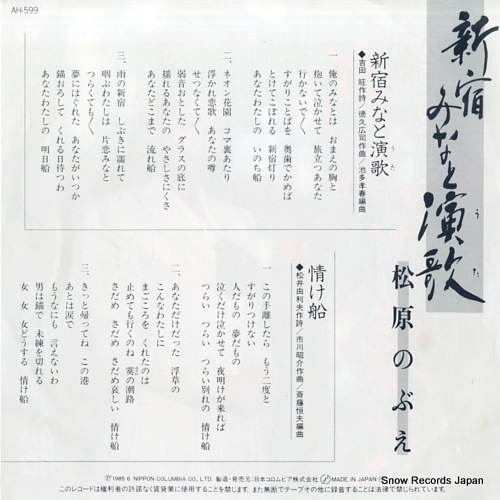 AH-599
新宿
みなと
演歌
うた
松原のぶえ
新宿みなと演歌
うた
◆吉田 旺作詩／徳久広司作曲／池多孝春編曲
一 俺のみなとは おまえの胸と
抱いて泣かせて 旅立つあなた
行かないで〱
すがりことばを 奥歯でかめば
とけてこぼれる 新宿灯り
あなたわたしの いのち船
二、ネオン花園 コマ裏あたり
浮かれ恋歌 あなたの噂
せつなくて〱
弱音おとした グラスの底に
揺れるあなたの やさしさにくさ
あなたどこまで 流れ船
三、雨の新宿 しぶきに濡れて
咽ぶわたしは 片恋みなと
つらくても〱
夢にはぐれた あなたがいつか
錨おろして くれる日待つわ
あなたわたしの 明日船
情け船
◆松井由利夫作詩／市川昭介作曲／斎藤恒夫編曲
一 この手離したら もう二度と
すがりつけない
人だもの 夢だもの
泣くだけ泣かせて 夜明けが来れば
つらい つらい つらい別れの 情け船
二、あなただけだった 浮草の
こんなわたしに
まごころを くれたのは
止めても行くのね 霙の潮路
さだめ さだめ さだめ哀しい 情け船
三、きっと帰ってね この港
あとは涙で
もうなにも 言えないわ
男は錨で 未練を切れる
女 女 女どうする 情け船
Ⓟ1985.6 NIPPON COLUMBIA CO., LTD. 製造・発売元：日本コロムビア株式会社 MADE IN JAPAN
このレコードは権利者の許諾なく賃貸業に使用することを禁じます。また無断でテープその他に録音することは法律で禁じられています。
Snow Records Japan